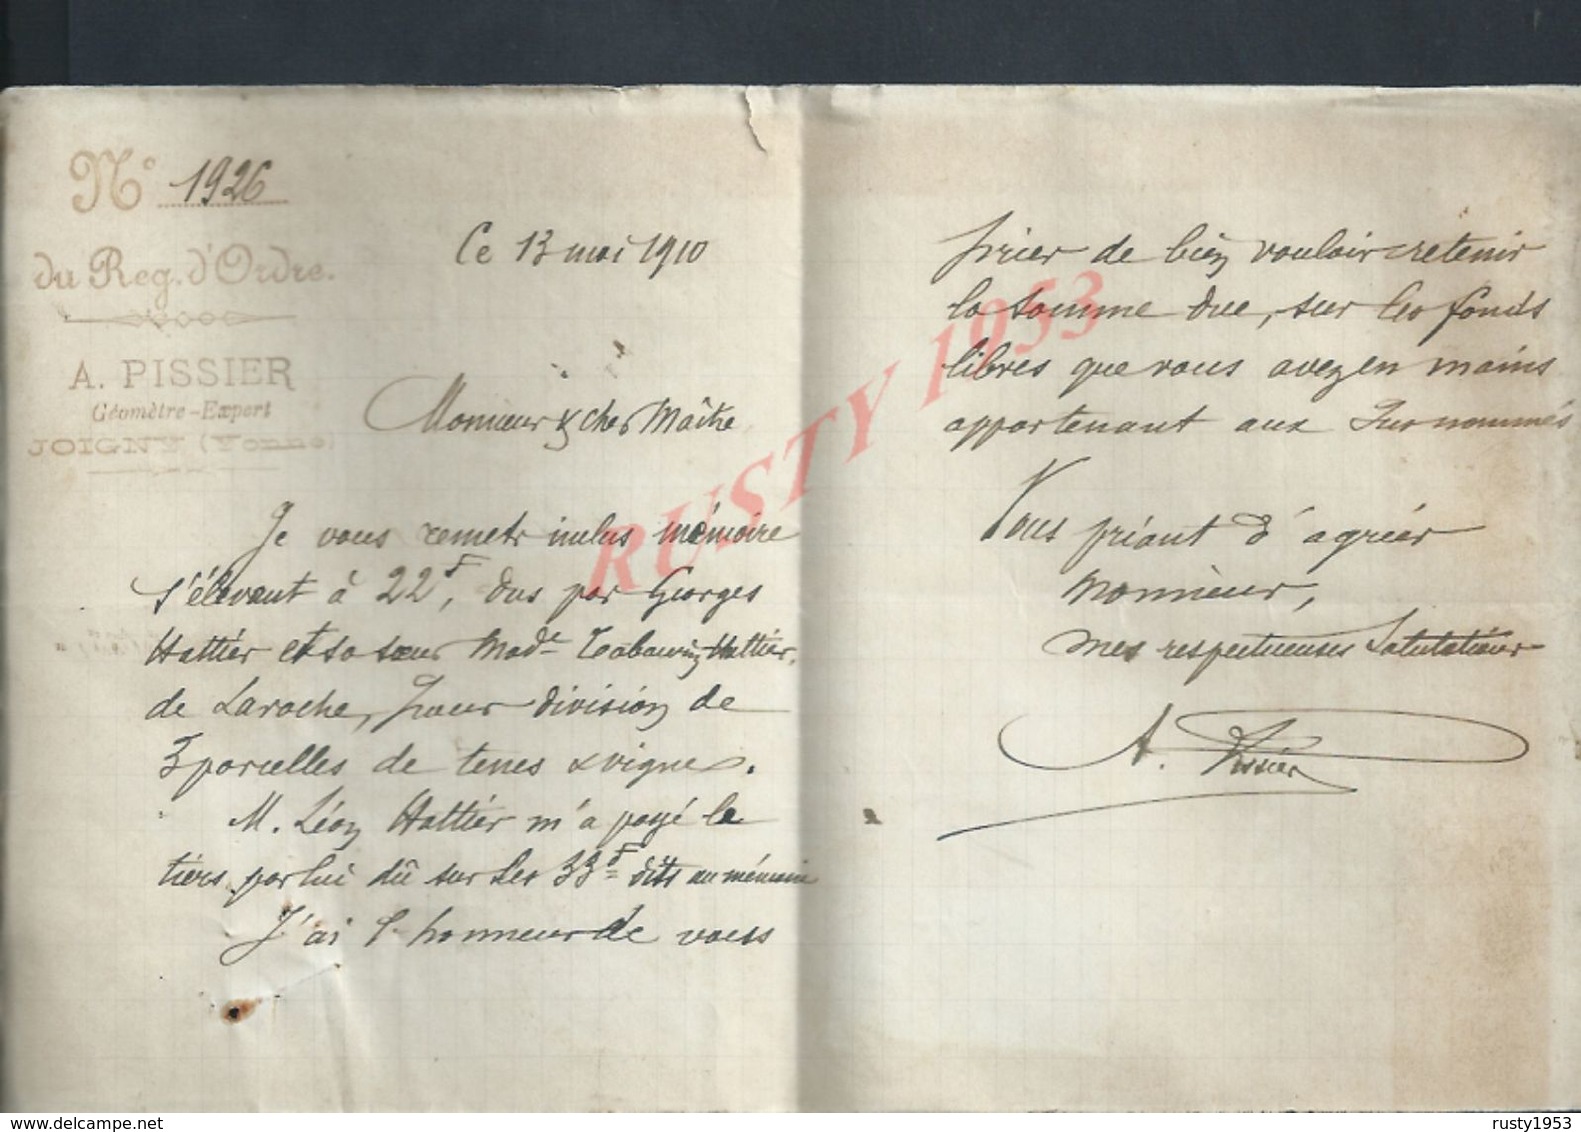 N° 1926
du Reg. d'Ordre.
A. PISSIER
Géomètre-Expert
JOIGNY (Yonne)
Ce 13 mai 1910
Monsieur & cher Maître
Je vous remets inclus mémoire
s'élevant à 22F, dus par Georges
Hattier et sa sœur Made Hattier,
de Laroche, pour division de
3 parcelles de terres & vignes.
M. Léon Hattier m'a payé le
tiers par lui dû sur les 33F dits au mémoire
J'ai l'honneur de vous
prier de bien vouloir retenir
la somme due, sur les fonds
libres que vous avez en mains
appartenant aux surnommés
Vous priant d'agréer
Monsieur,
mes respectueuses salutations
A. Pissier
RUSTY 1953
www.delcampe.net
rusty1953